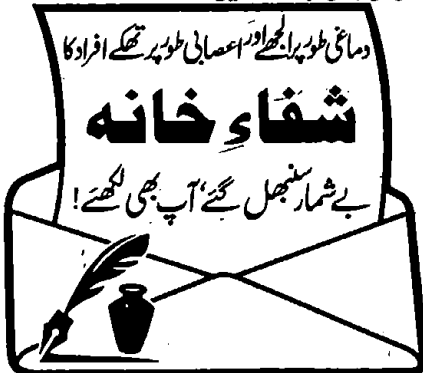 دماغی طور پر الجھے اور اعصابی طور پر تھکے افراد کا
شفاءِ خانہ
بے شمار سنبھل گئے، آپ بھی لکھئے!